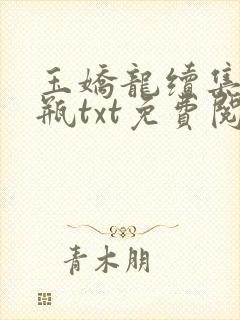 玉嬌龍續集
瓶txt免費閱
青木朋